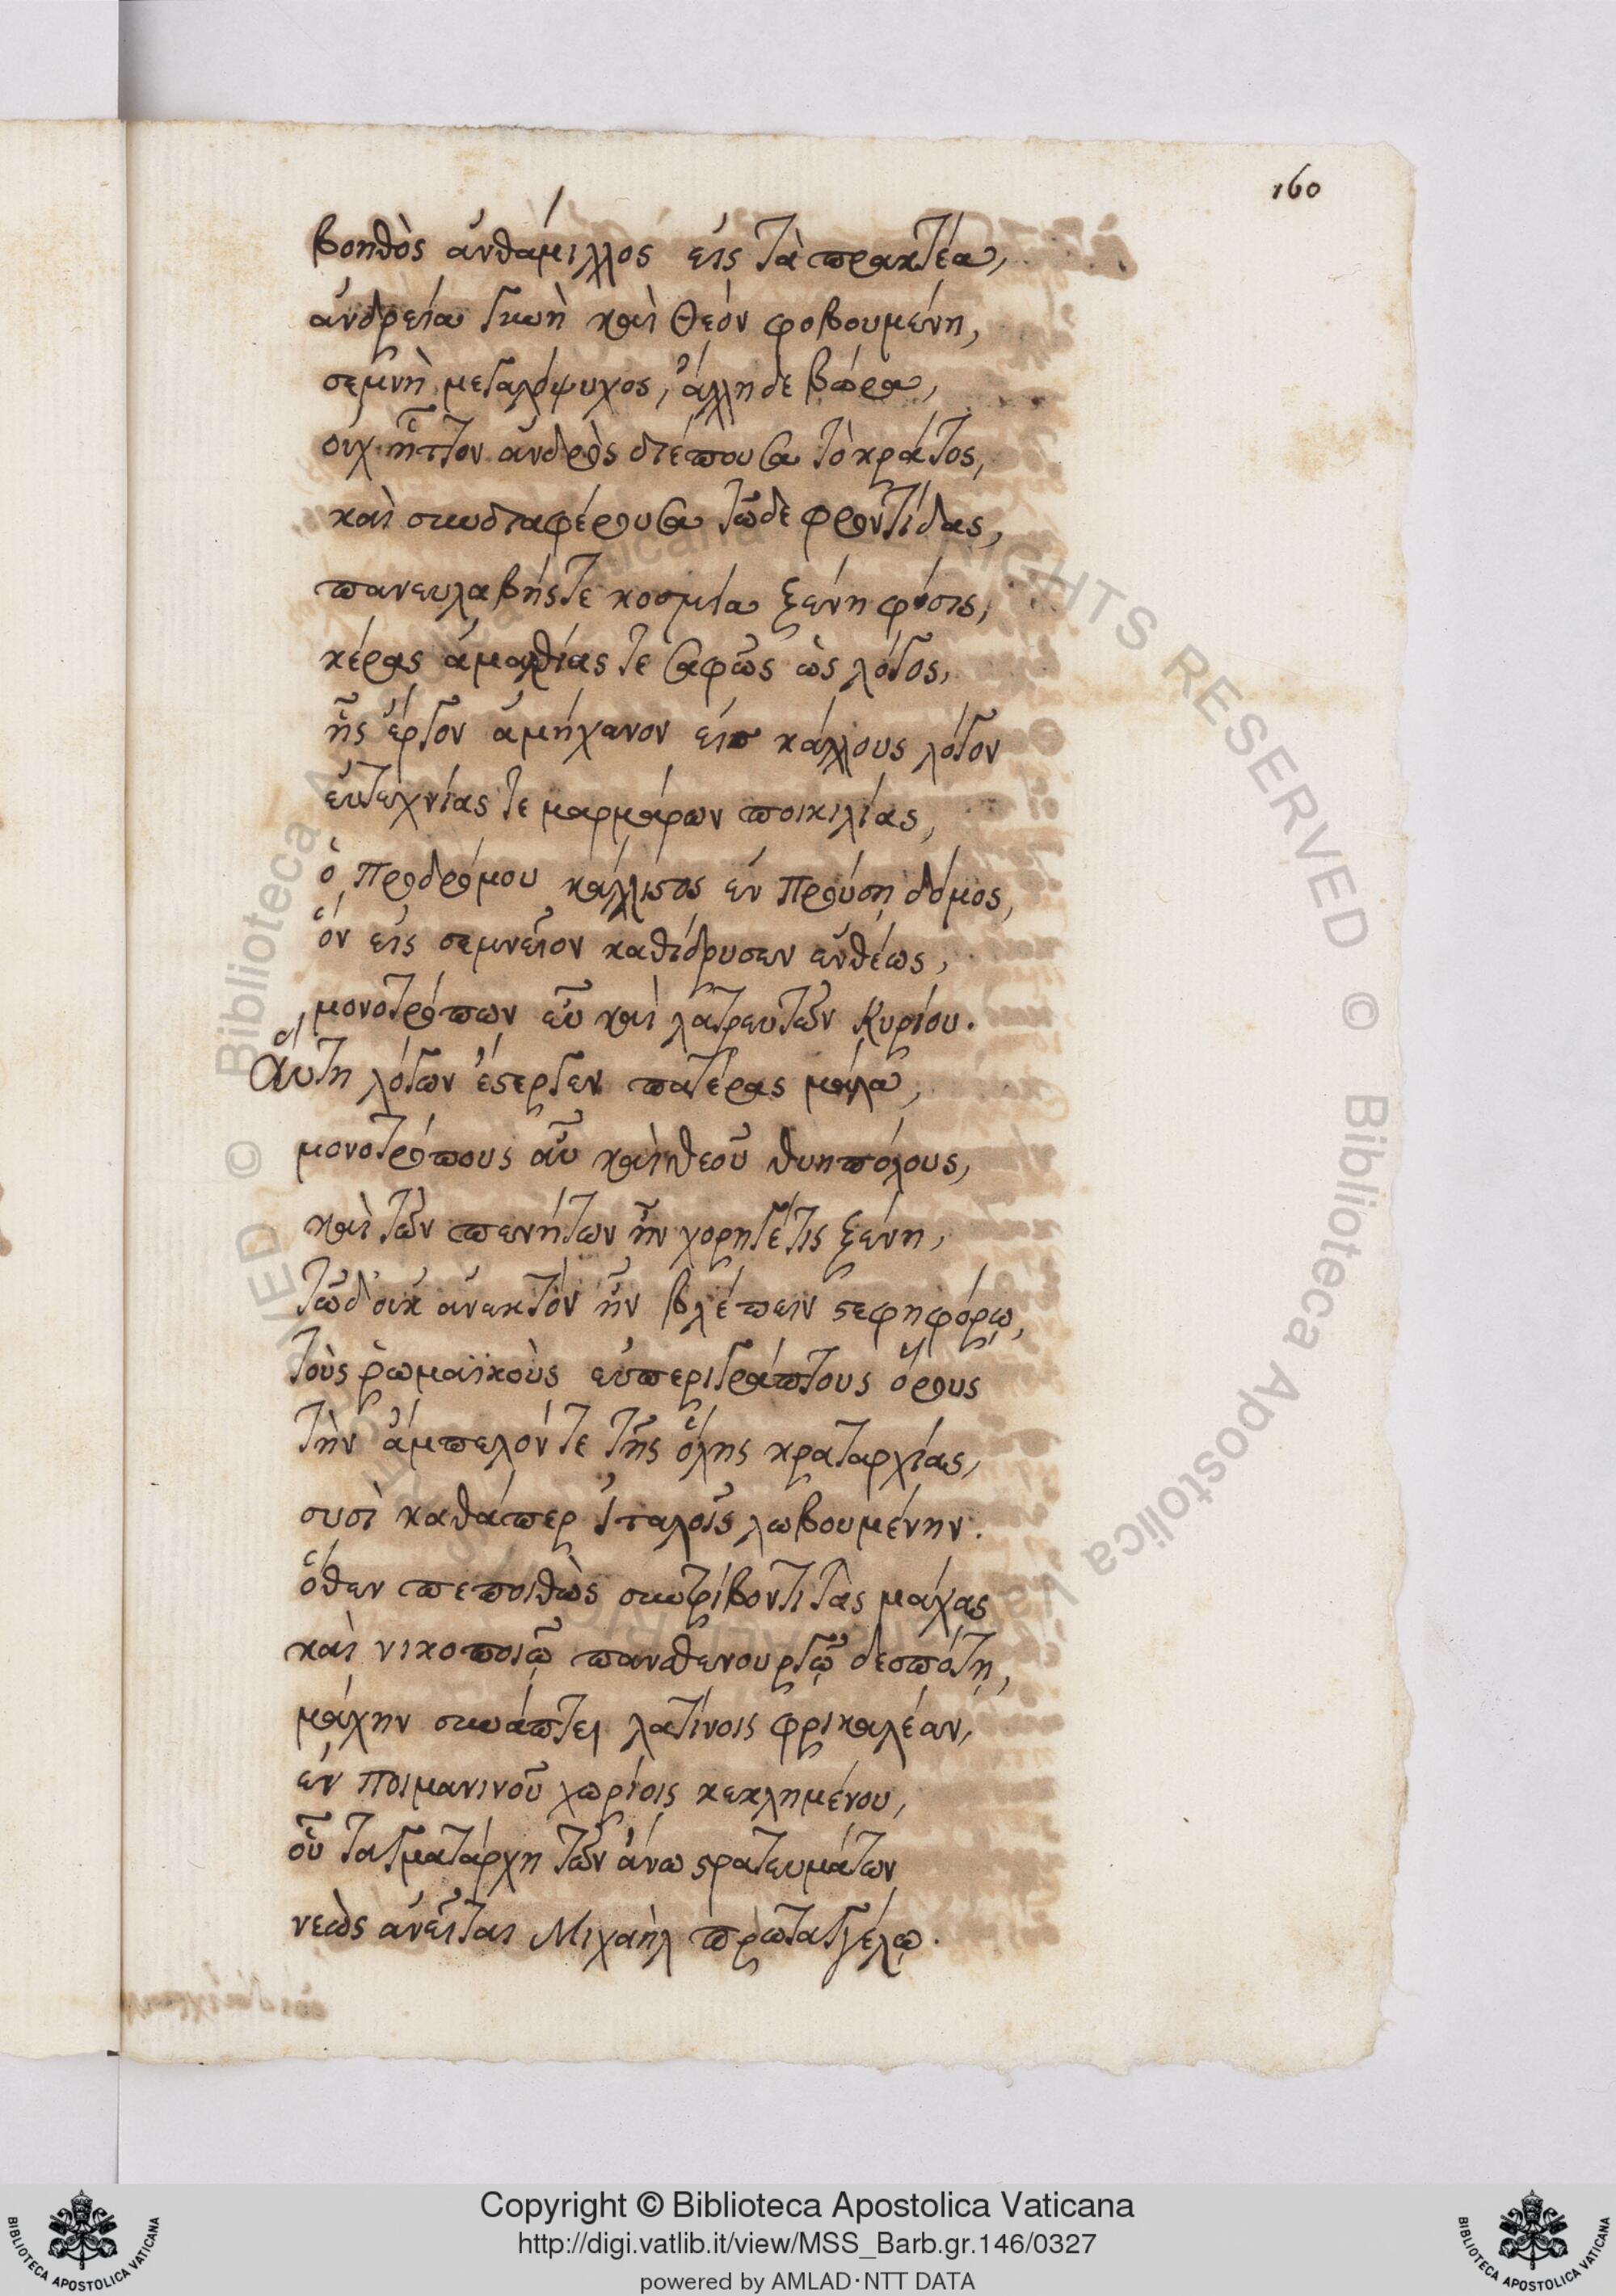 160
βοηθὸς ἀνθάμιλλος εἰς τὰ πρακτέα,
ἀνδρεία γυνὴ καὶ Θεὸν φοβουμένη,
σεμνὴ, μεγαλόψυχος, ἄλλη δεβώρα,
οὐχ ἧττον ἀνδρὸς διέπουσα τὸ κράτος,
καὶ συνδιαφέρουσα τῶδε φροντίδας,
πανευλαβής τε κοσμία ξένη φύσις,
κέρας ἀμαλθίας τε σαφῶς ὡς λόγος,
ἧς ἔργον ἀμήχανον εἰπ κάλλους λόγον
εὐτεχνίας τε μαρμάρων ποικιλίας,
ὁ Προδρόμου κάλλιστος ἐν Προύση δόμος,
ὃν εἰς σεμνεῖον καθίδρυσεν ἐνθέως,
μονοτρόπων εὖ καὶ λατρευτῶν Κυρίου.
Αὕτη λόγων ἔστεργεν πατέρας μάλα,
μονοτρόπους αὖ καὶ θεοῦ θυηπόλους,
καὶ τῶν πενήτων ἦν χορηγέτις ξένη,
τῶδ' οὐκ ἀνεκτὸν ἦν βλέπειν στεφηφόρῳ,
τοὺς ῥωμαϊκοὺς εὐπεριγράπτους ὅρους
τὴν ἄμπελόν τε τῆς ὅλης κραταρχίας,
συσὶ καθάπερ Ἰταλοῖς λωβουμένην.
ὅθεν πεποιθὼς συντρίβοντι τὰς μάχας
καὶ νικοποιῷ πανσθενουργῷ δεσπότῃ,
μάχην συνάπτει λατίνοις φρικαλέαν,
ἐν Ποιμανινοῦ χωρίοις κεκλημένου,
οὗ ταγματάρχη τῶν ἄνω στρατευμάτων
νεὼς ἀνεῖται Μιχαὴλ πρωταγγέλῳ.
Copyright © Biblioteca Apostolica Vaticana
http://digi.vatlib.it/view/MSS_Barb.gr.146/0327
powered by AMLAD·NTT DATA
BIBLIOTECA APOSTOLICA VATICANA
BIBLIOTECA APOSTOLICA VATICANA